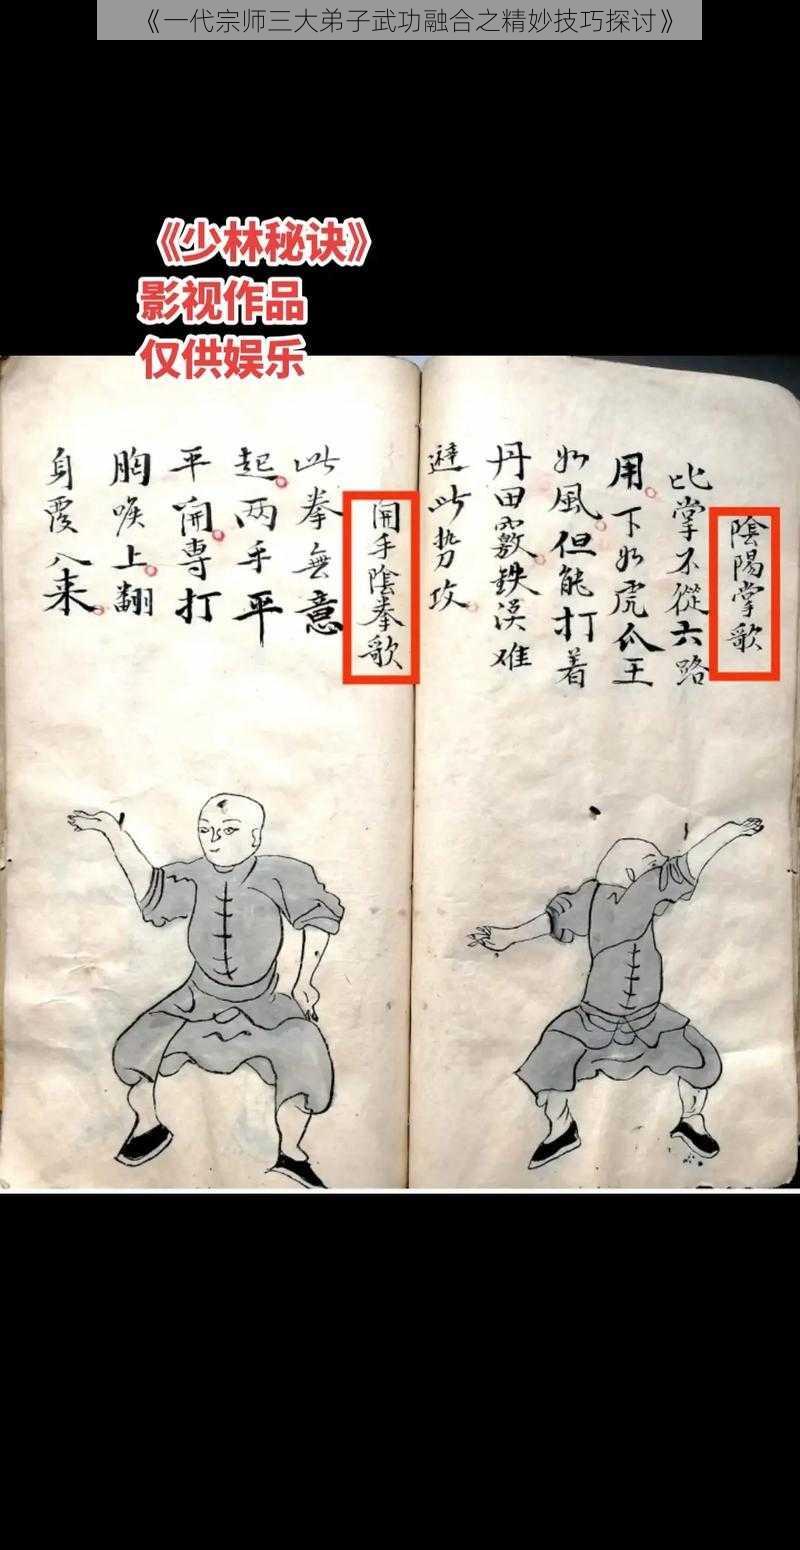 《一代宗师三大弟子武功融合之精妙技巧探讨》
《少林秘诀》
影视作品
仅供娱乐
陰陽掌歌
比掌不從六路
用下如虎爪王
如風但能打着
丹田竅鉄漢难
避此势攻
開手陰拳歌
此拳無意
起两手平
平開專打
胸喉上翻
身覆入来